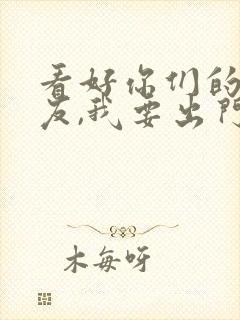 看好你们的
友,我要出门
木每呀